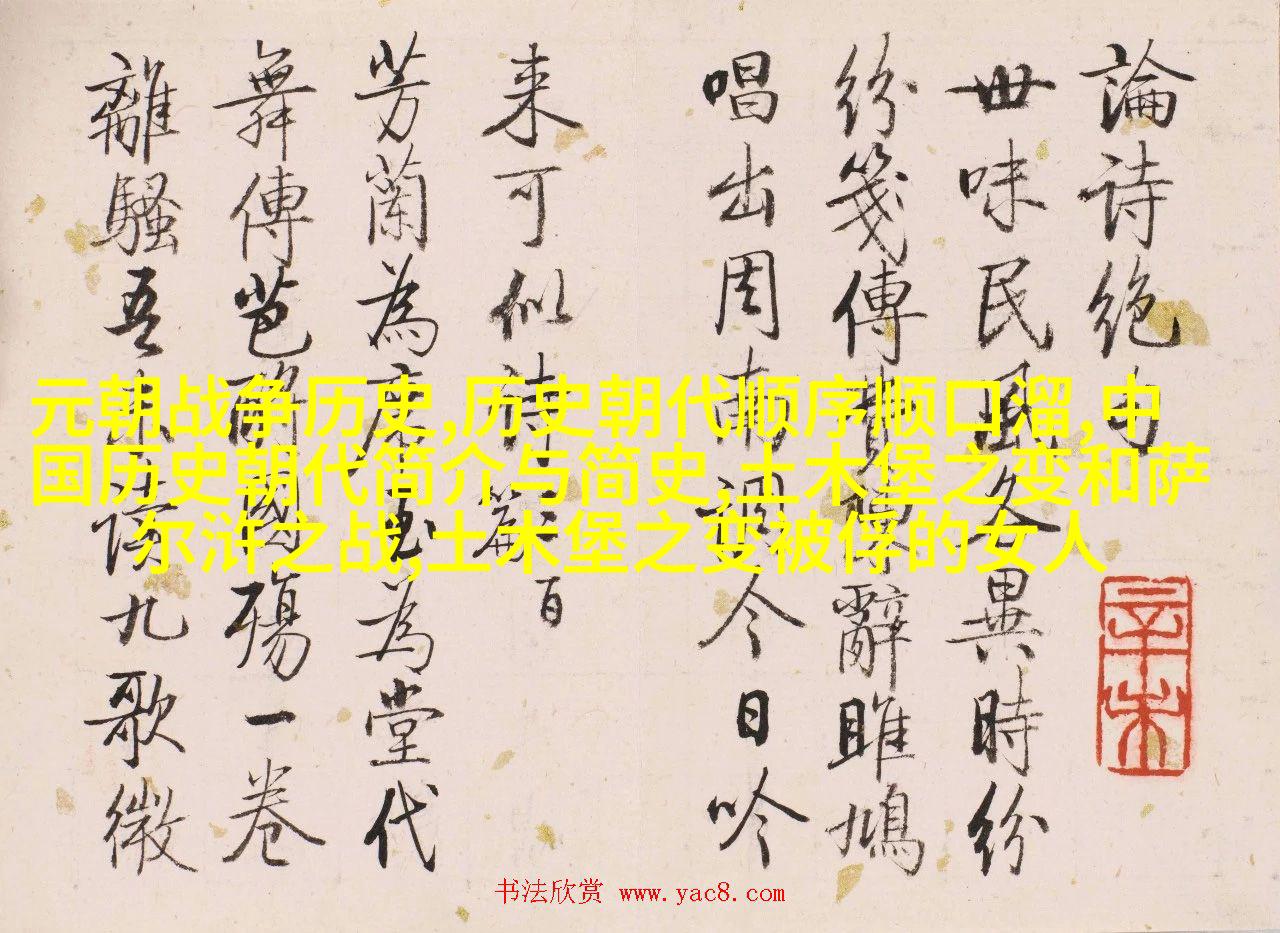 論詩絕句
世味民風各異時紛
紛箋傳費辭雎鳩
唱出周南調今日吟
来可似詩篇百
芳蘭為席玉為堂代
舞傳芭酹國殤一卷
離騷吾未讀九歌微
辛未
元朝战争历史,历史朝代顺序顺口溜,中
国历史朝代简介与简史,土木堡之变和萨
尔浒之战,土木堡之变被俘的女人
书法欣赏 www.yac8.com